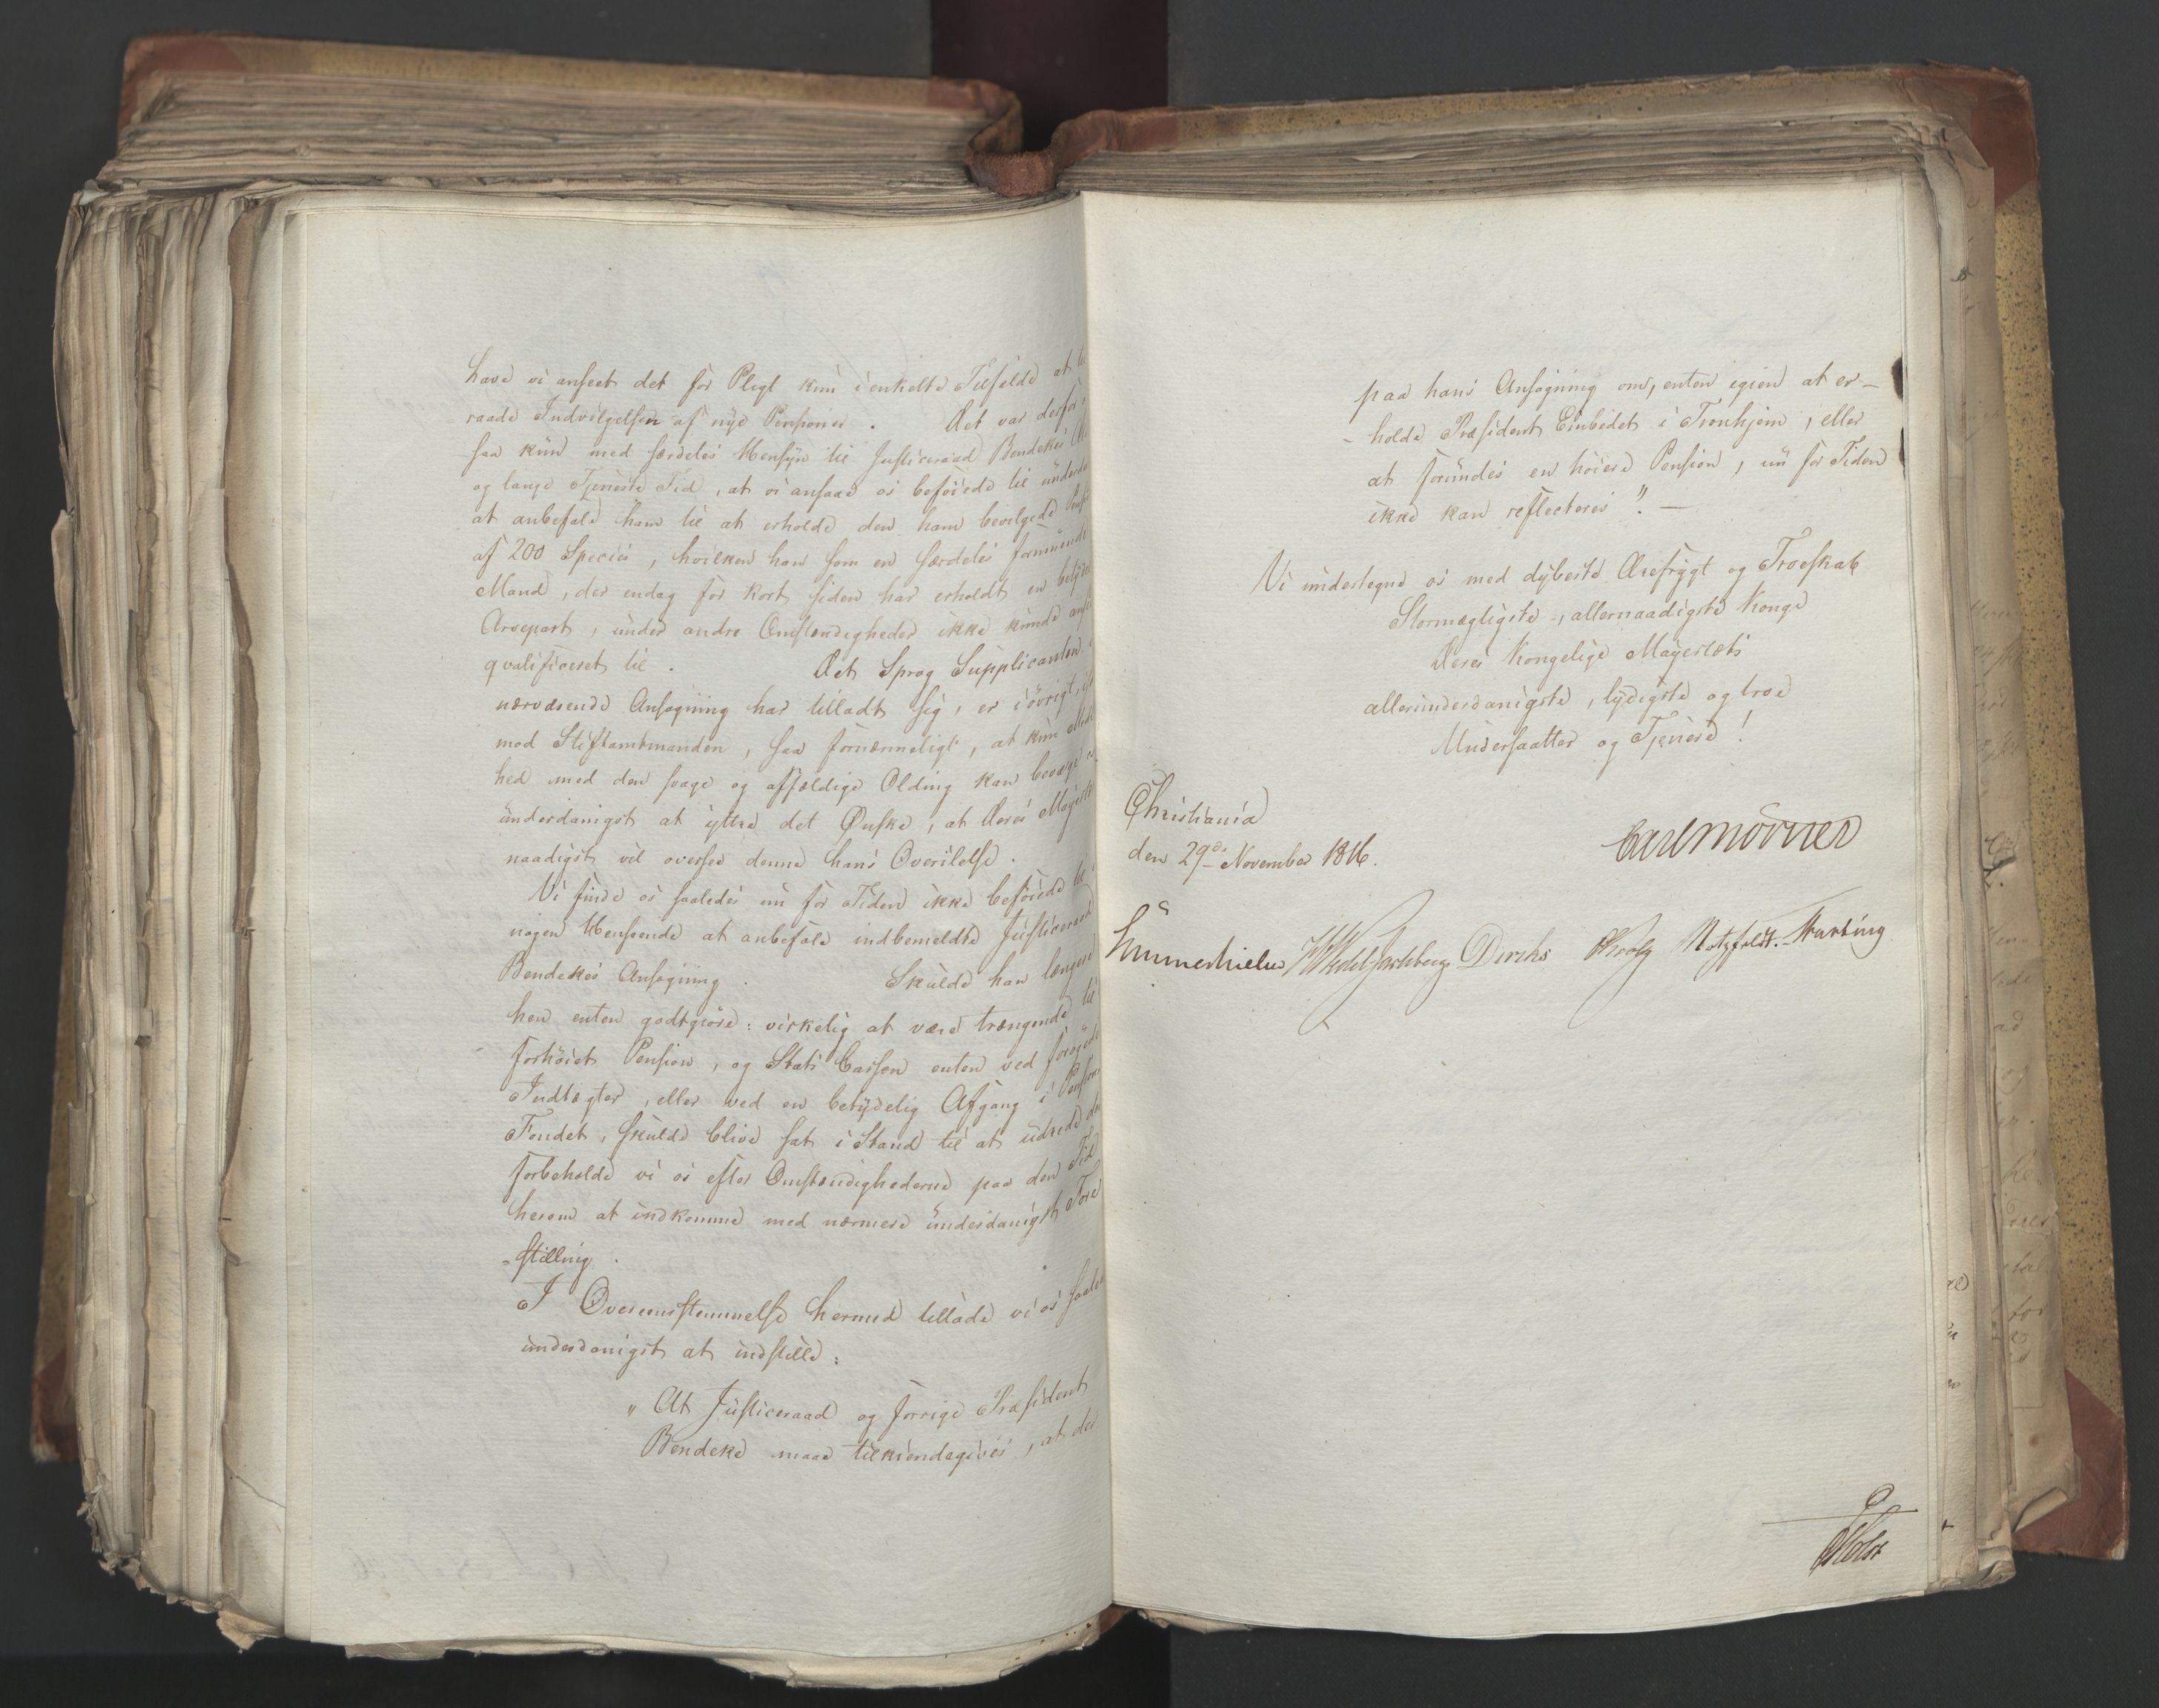 have vi anseet det for Pligt kun i enkelte Tilfelde at til
raade Indvilgelsen af nye Pensioner. Det var derfor,
saa kun med særdeles Hensyn til Justiceraad Bendekes
og lange Tjeneste Tid, at vi ansaae os beføiede til underd
at anbefale ham til at erholde den ham bevilgede
af 200 Species, hvilken han som en særdeles formuende
Mand, der endog for kort siden har erholdt en betyde
Arvepart, under andre Omstændigheder ikke kunde anse
qvalificeret til. Det Sprog Supplicanten i
nærværende Ansøgning har tilladt sig, er iøvrigt,
mod Stiftamtmanden, saa fornærmeligt, at kun
hed med den svage og affældige Olding kan bevæge os
underdanigst at yttre det Ønske, at Deres Majestæt
naadigst vil oversee denne hans Overilelse.
Vi finde os saaledes nu for Tiden ikke beføiede til i
nogen Henseende at anbefale indbemeldte Justiceraad
Bendekes Ansøgning. Skulde han længere
hen enten godtgiøre: virkelig at være trængende til
forhøiet Pension, og Stats Cassen enten ved forøgede
Indtægter, eller ved en betydelig Afgang i Pensions
Fondet, skulde blive sat i Stand til at udrede den
forbeholde vi os efter Omstændighederne paa den Tid
herom at indkomme med nærmere underdanigst Fore
-stilling.
I Overeensstemmelse hermed tillade vi os saaled
underdanigst at indstille:
" At Justiceraad og forrige Præsident
Bendeke maae tilkiendegives, at der
paa hans Ansøgning om, enten igien at er-
-holde Præsident Embedet i Tronhjem, eller
at forundes en høiere Pension, nu for Tiden
ikke kan reflecteres". —
Vi undertegne os med dybeste Ærefrygt og Troeskab
Stormægtigste, allernaadigste Konge
Deres Kongelige Mayestæts
allerunderdanigste, lydigste og troe
Undersaatter og Tjenere!
Christiania
den 29de November 1816.
Carl Mörner
Sommerhielm HWedel Jarlsberg Diriks Krohg Motzfeldt. Harbing
Holst